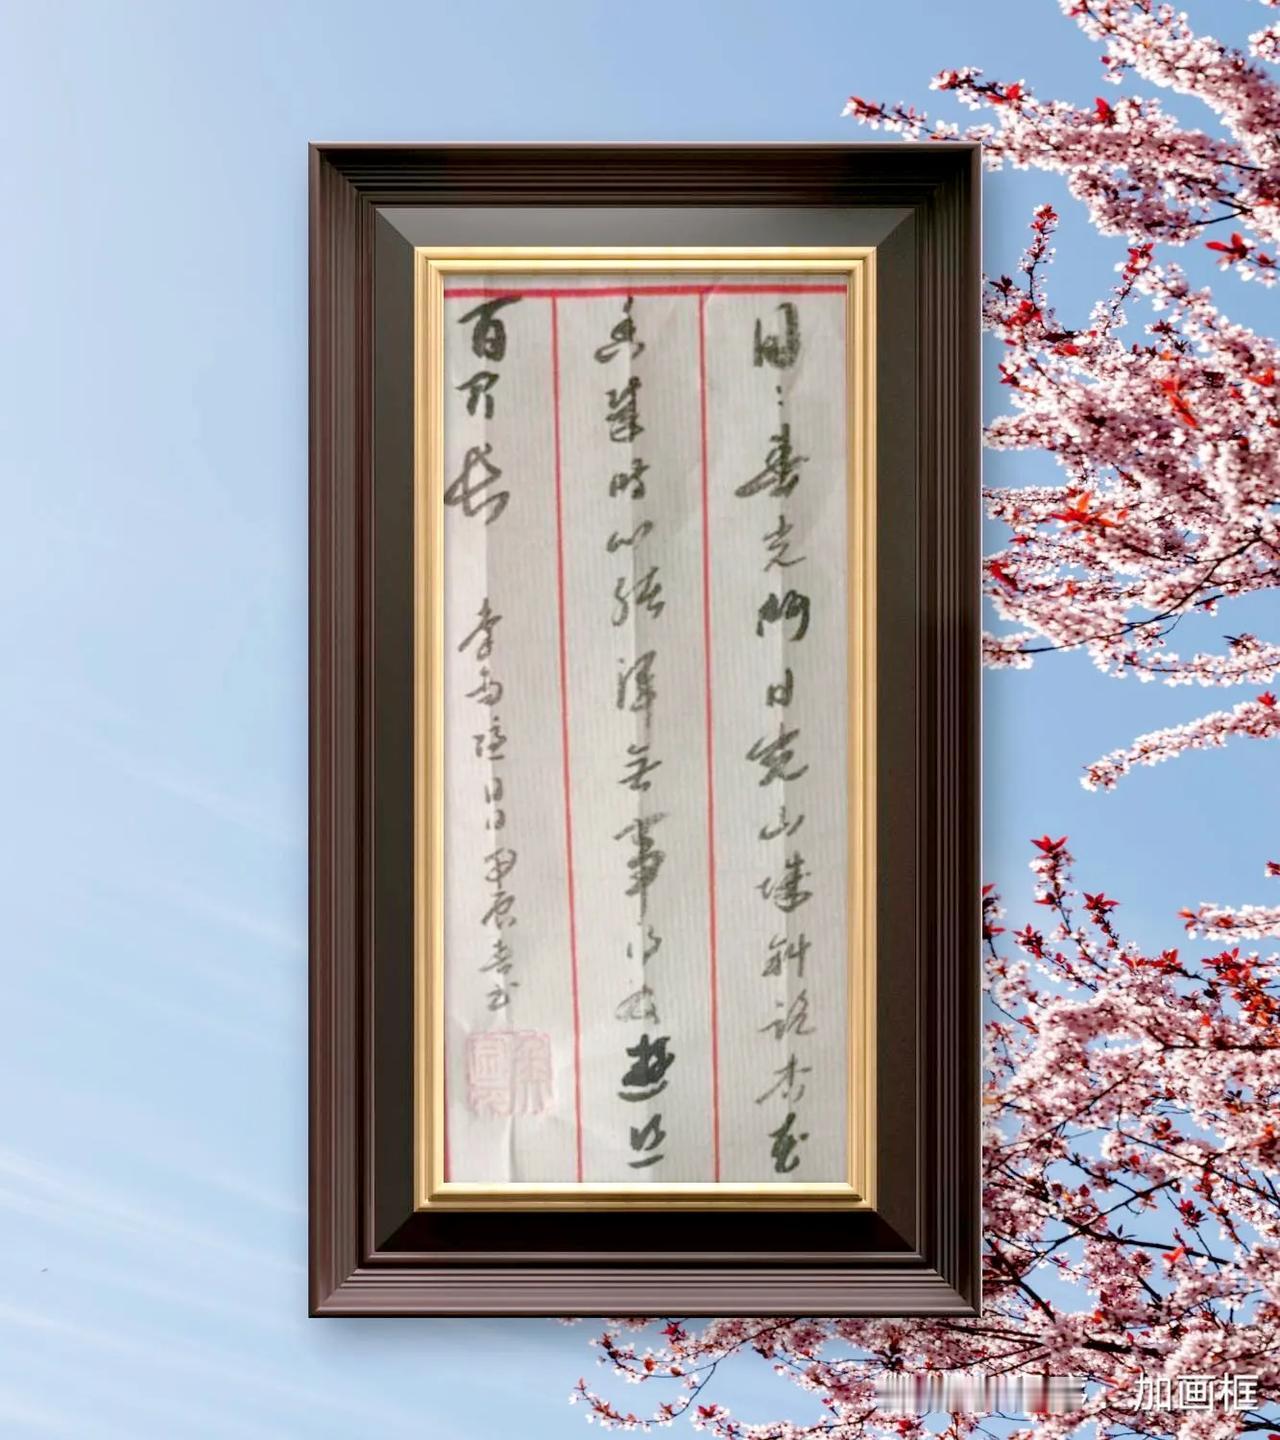 日々春光鬥日光山城斜路杏花
香幾時心緒渾無事得及遊丝
百尺长 李商隐日日甲辰春书
加画框